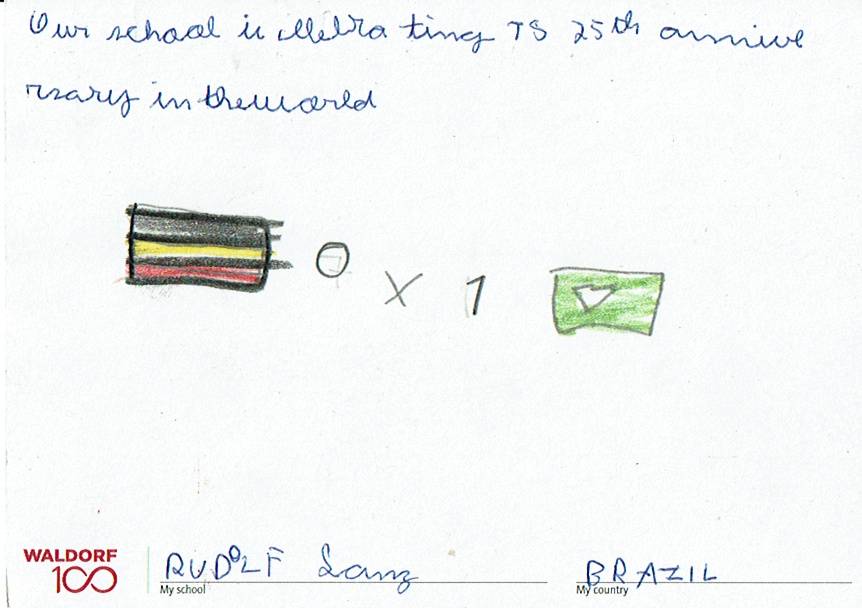 Our school is cllebra ting TS 25th annive
rsary in the world
0 x 1
WALDORF
100
RUDOLF Lanz
My school
BRAZIL
My country